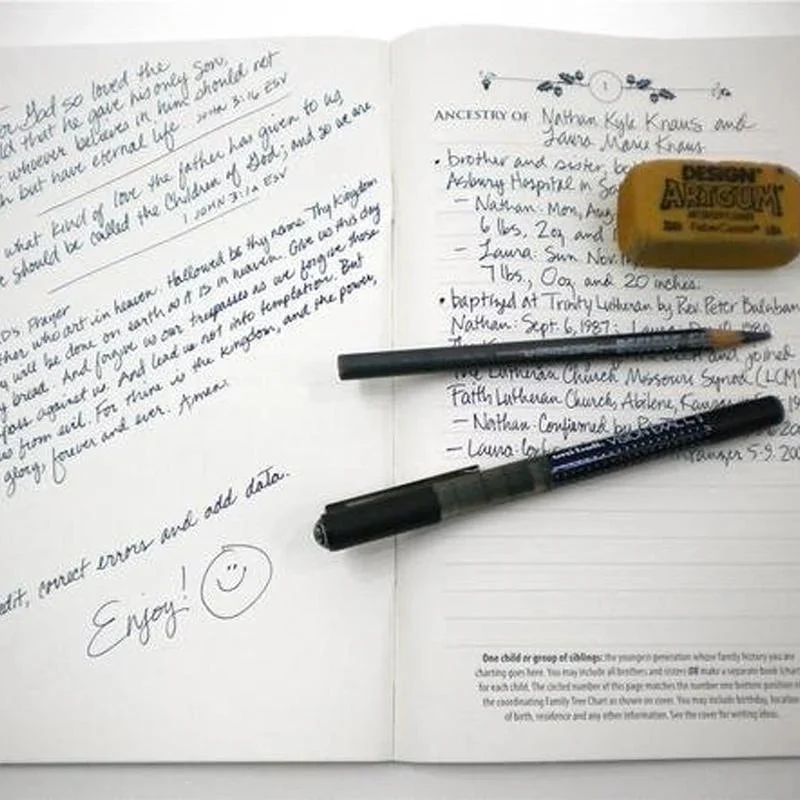 God so loved the
that he gave his only Son,
whoever believes in him should not
but have eternal life. JOHN 3:16 ESV
what kind of love the father has given to us,
should be called the Children of God; and so we are
1 JOHN 3:1A ESV
Prayer
who art in heaven. Hallowed be thy name. Thy Kingdom
will be done on earth as it is in heaven. Give us this day
bread. And forgive us our trespasses as we forgive those
against us. And lead us not into temptation. But
us from evil. For thine is the kingdom, and the power,
glory, forever and ever. Amen.
edit, correct errors and add data.
Enjoy!
1
ANCESTRY OF Nathan Kyle Kraus and
Laura Marie Kraus
• brother and sister,
Asbury Hospital in
– Nathan: Mon, Aug
6 lbs, 2oz and
– Laura: Sun Nov
7 lbs, 0oz and 20 inches.
• baptized at Trinity Lutheran by Rev. Peter
Nathan: Sept. 6, 1987;
and joined
The Lutheran Church Missouri Synod (LCMS
Faith Lutheran Church, Abilene,
– Nathan: Confirmed by
– Laura:
5-9-
DESIGN
ARTGUM
FaberCastell
One child or group of siblings: the youngest generation whose family history you are
charting goes here. You may include all brothers and sisters OR make a separate book
for each child. The circled number of this page matches the number one bottom position
the coordinating Family Tree Chart as shown on cover. You may include birthday, location
of birth, residence and any other information. See the cover for writing ideas.